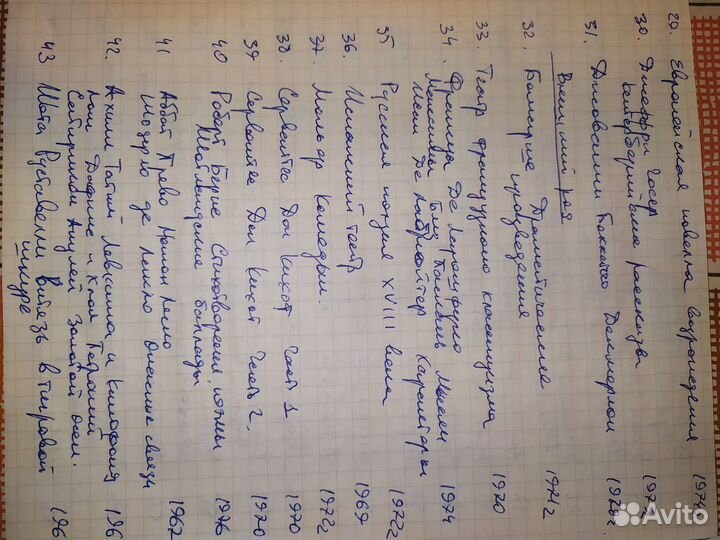 29. Европейская новелла возрождения 197
30. Джеффри Чосер
Кентерберийские рассказы 197
31. Джованни Боккаччо Декамерон 1970г.
Внешний ряд
32. Бомарше Драматические
произведения 1971г
33. Театр французского классицизма 1970
34. Франсуа Де Ларошфуко
Максимы Блез Паскаль Мысли
Жан Де Лабрюйер Характеры 1974
35 Русская поэзия XVIII века 1972г
36. Испанский театр 1969
37. Мольер Комедии. 1972г
38. Сервантес Дон Кихот Часть 1 1970
39 Сервантес Дон Кихот Часть 2, 1970
40 Роберт Бернс Стихотворения, поэмы
Шотландские баллады 1976
41 Аббат Прево Манон Леско
Шодерло де Лакло Опасные связи 1967
42. Ахилл Татий Левкиппа и Клитофонт
Лонг Дафнис и Хлоя Петроний
Сатирикон Апулей Золотой осел. 196
43 Шота Руставели Витязь в тигровой
шкуре 196
Avito